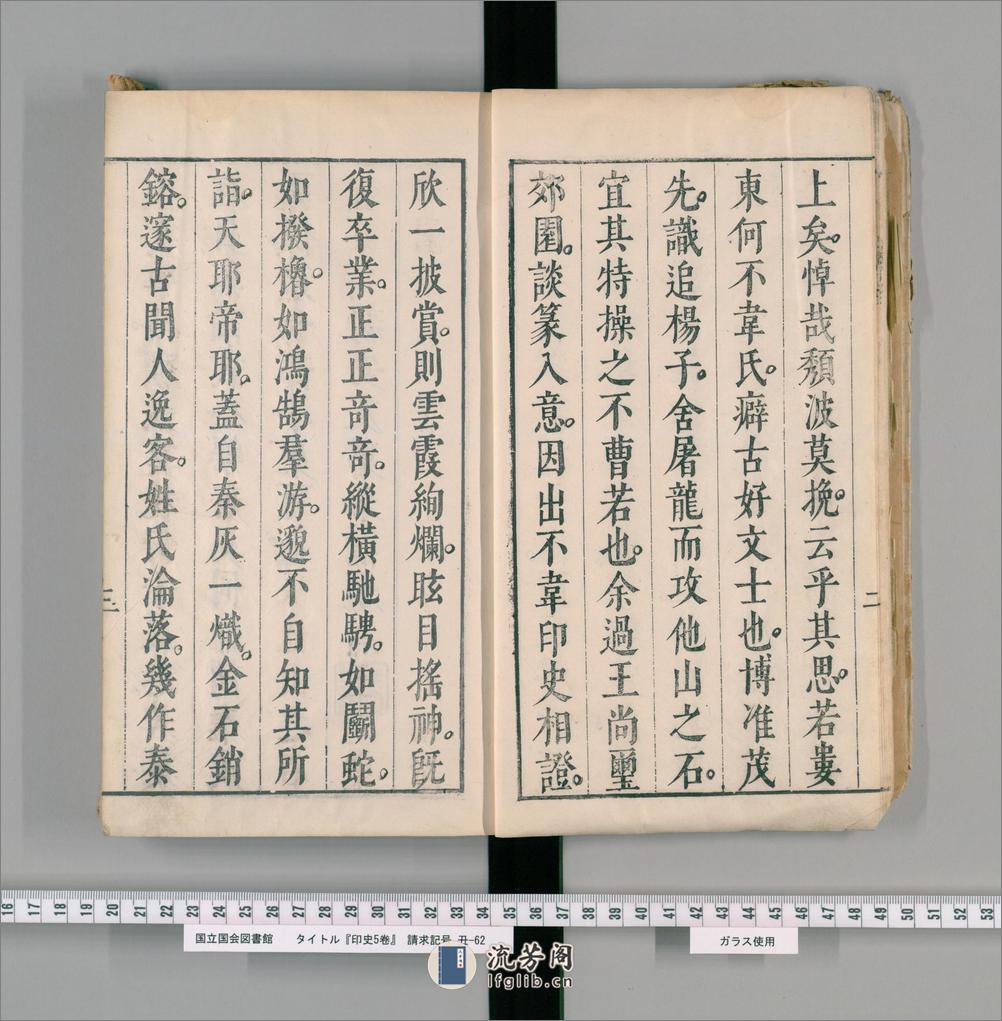 上矣。悼哉頹波莫挽。云乎其思。若婁
東何不韋氏。癖古好文士也。博准茂
先。識追楊子。舍屠龍而攻他山之石。
宜其特操之不曹若也。余過王尚璽
郊園。談篆入意。因出不韋印史相證。
二
欣一披賞。則雲霞絢爛。眩目搖神。旣
復卒業。正正奇奇。縱橫馳騁。如鬭蛇。
如撥櫓。如鴻鵠羣游。邈不自知其所
詣。天耶帝耶。蓋自秦灰一熾。金石銷
鎔。邃古聞人逸客。姓氏淪落。幾作泰
三
16 17 18 19 20 21 22 23 24 25 26 27 28 29 30 31 32 33 34 35 36 37 38 39 40 41 42 43 44 45 46 47 48 49 50 51 52 53
国立国会図書館 タイトル『印史5巻』 請求記号 丑-62
ガラス使用
流芳阁
lfglib.cn